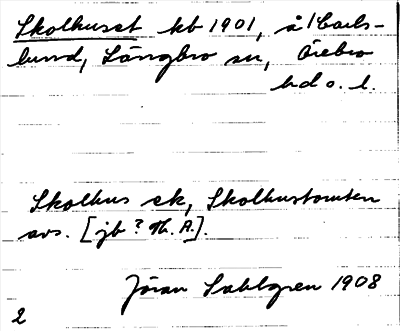 Skolhuset kb 1901, å Carls-
lund, Längbro sn, Örebro
hd o. l.
Skolhus ek, Skolhustomten
avs. [jb? Th. A.].
Jöran Sahlgren 1908
2